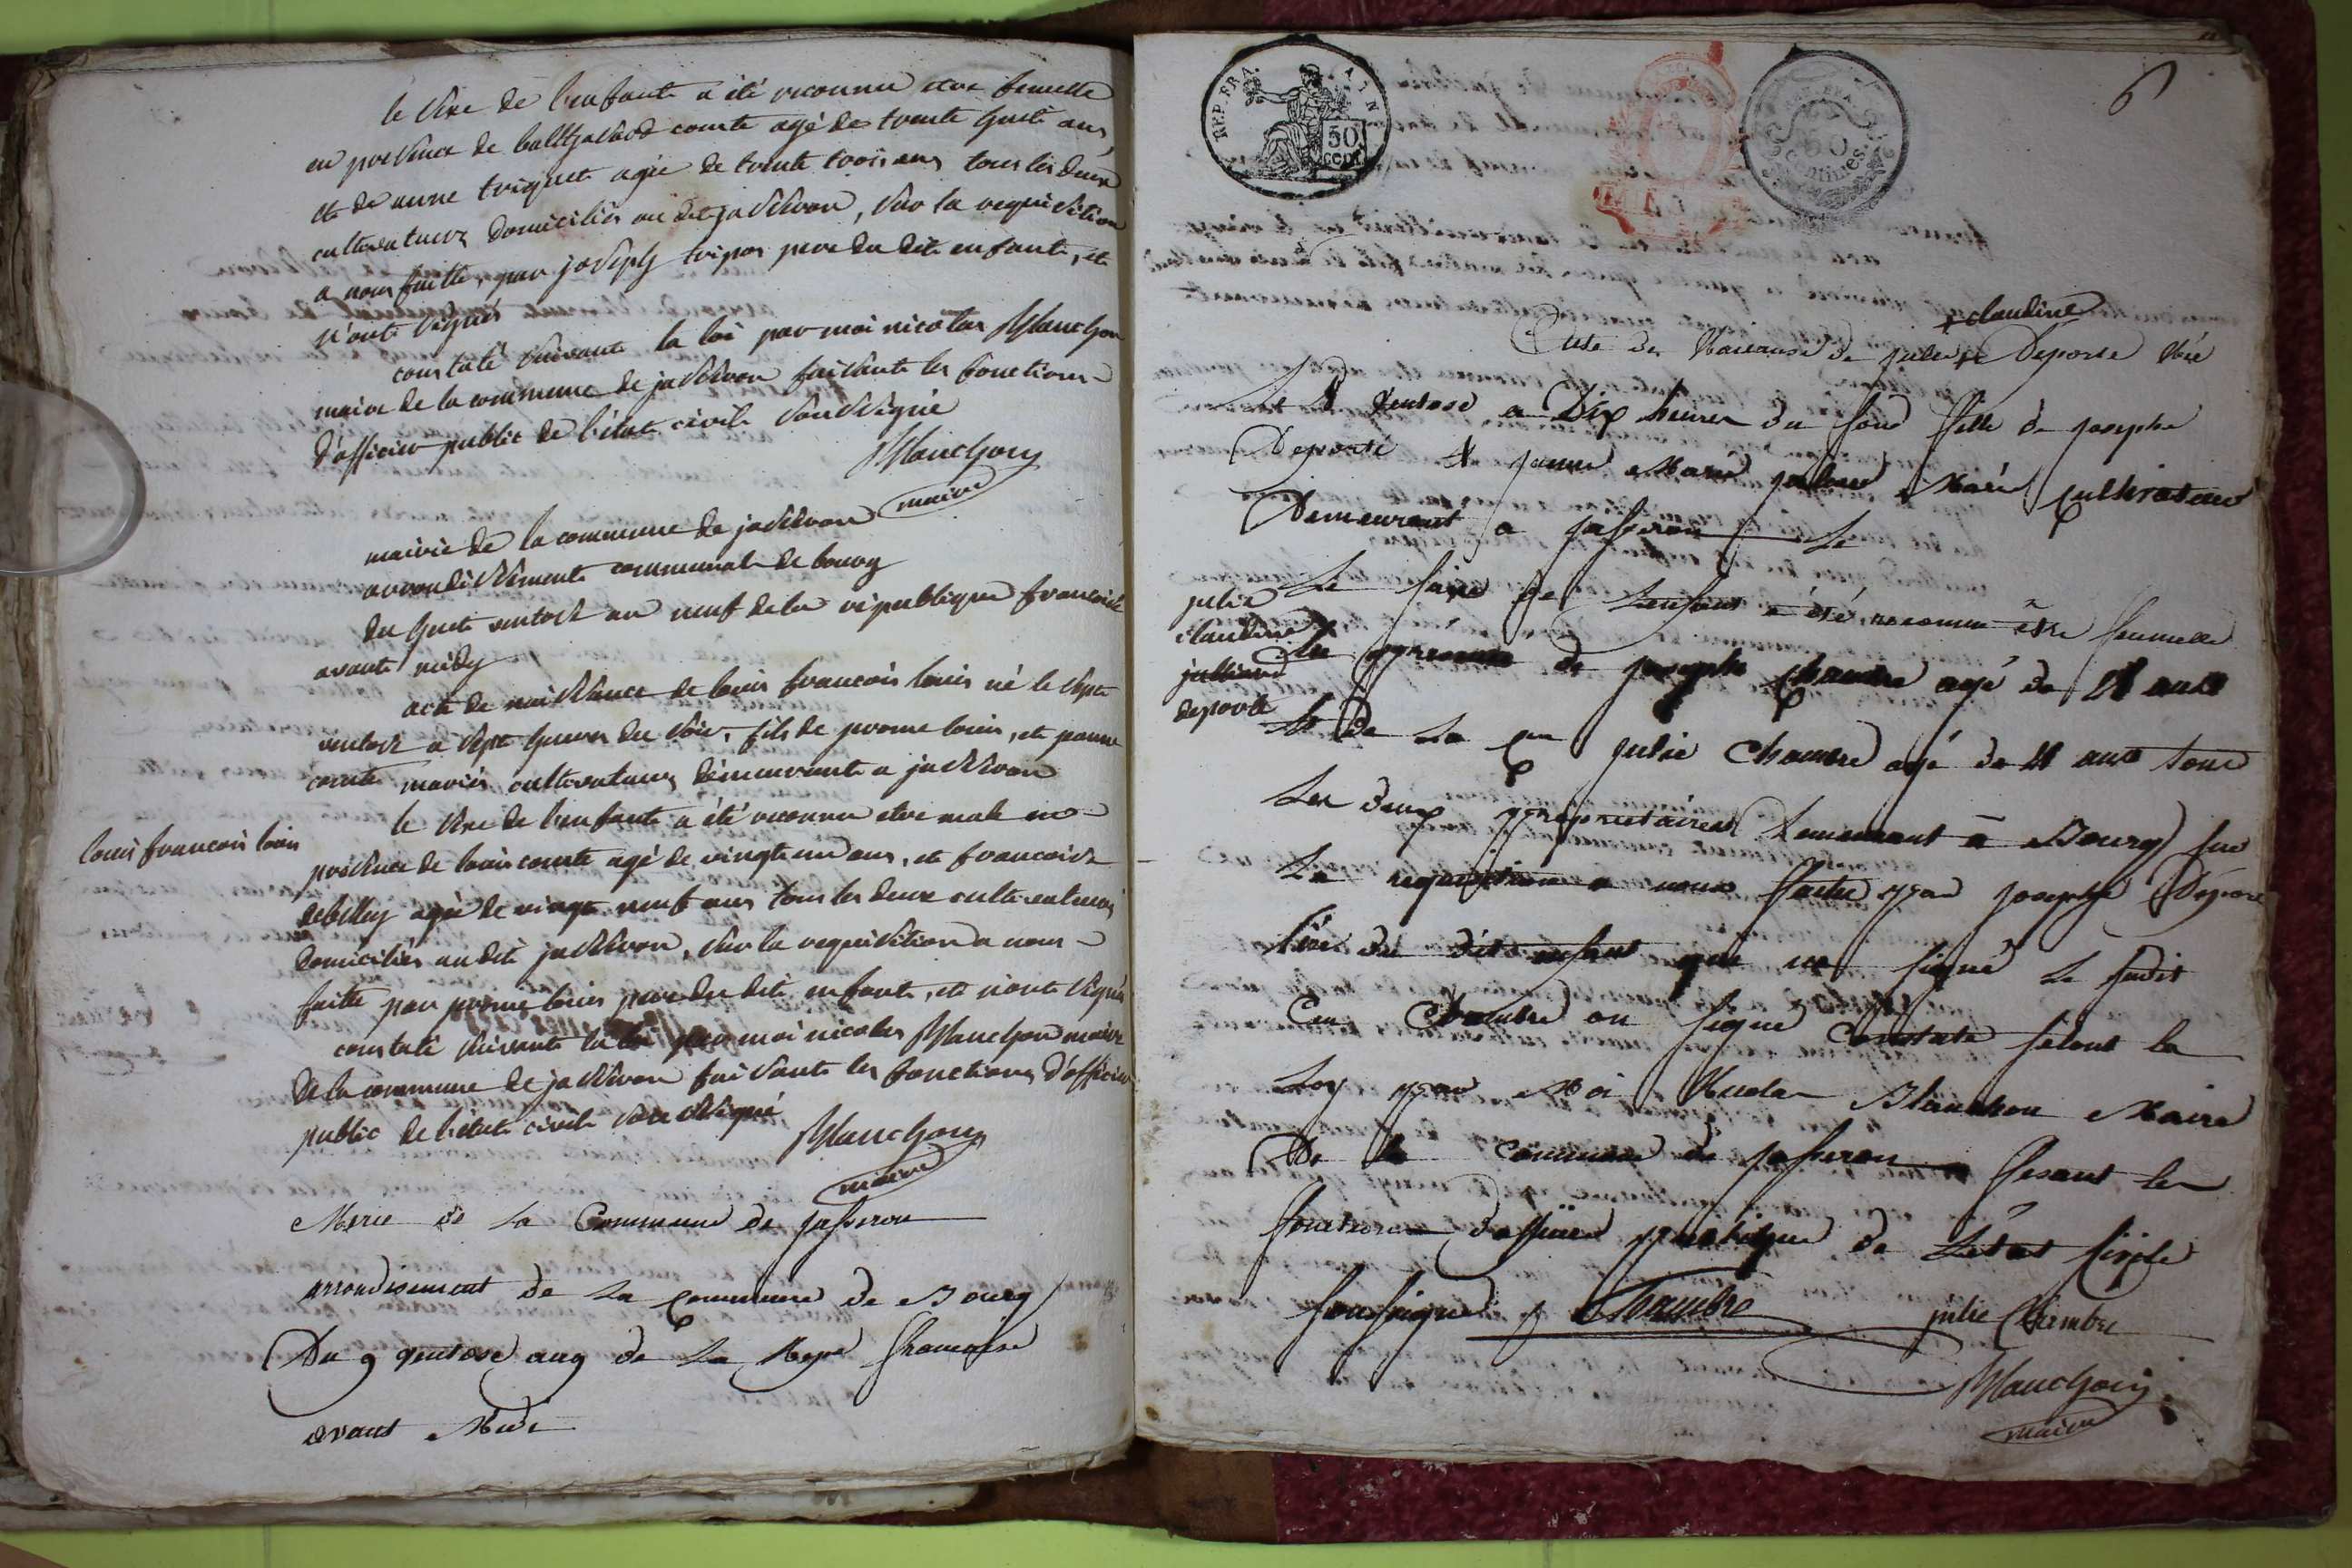 le sixe de l'enfante a été reconnu etre femelle
en presence de balthasard comte agé de trente huite ans,
et de anne triquet agée de trente trois ans tous les deux
cultivateurs domiciliés au dit jasseron, sur la requisition
a nous faitte, par joseph tripoz pere du dit enfante, et
n'onte signés
constaté suivante la loi par moi nicolas Blanchon
maire de la commune de jasseron faisante les fonctions
d'officier public de l'état civile soussigné
Blanchon
maire
mairie de la commune de jasseron
arrondissemente communale de bourg
du huit ventose an neuf de la république francaise
avante midy
acte de naissance de louis françois louis né le sept
ventose a sept heures du soir, fils de louis, et jeanne
comte mariés cultivateurs demeurante a jasseron
le sixe de l'enfante a été reconnu etre male en
louis francois louis
presence de louis comte agé de vingt un ans, et francoise
debilly agée de vingt neuf ans tous les deux cultivateurs
domiciliés au dit jasseron, sur la requisition a nous
faitte par louis pere du dit enfante, et n'onte signés
constaté suivante la loi par moi nicolas Blanchon maire
de la commune de jasseron faisante les fonctions d'officier
public de l'état civile soussigné
Blanchon
maire
Merie de la Commune de jasseron
arrondisement de La Commune de Bourg
Du 9 ventose an 9 de la Repe francaise
avant Midi
REP. FRA. AIN
50 cent
REP. FRA.
50
centimes
6
+ claudine
Acte de Naisance de julie + Deporte Née
Le 8 Ventose a Dix heures du soir fille de josephe
Deporte & janne Marie Mariés Cultivateur
Demeurant a jasseron Le
Le saixe de Lenfant a été reconnu être femmelle
julie
claudine
julliard
deporte
En presence de josephe Chambre agé de ans
& de La julie Chambre agé de ans tous
Les deux propriétaires Demeurant a Bourg sur
La requisition a nous faitte par josephe Deporte
Père du dit enfant que na signé Le sudit
Chambre on signé Constate selont la
Loy par Moi Nicolas Blanchon Maire
De la Commune de jasseron fesant les
fonctions dofficier publique de Létat sivile
Soussigné J Chambre julie Chambre
Blanchon
maire